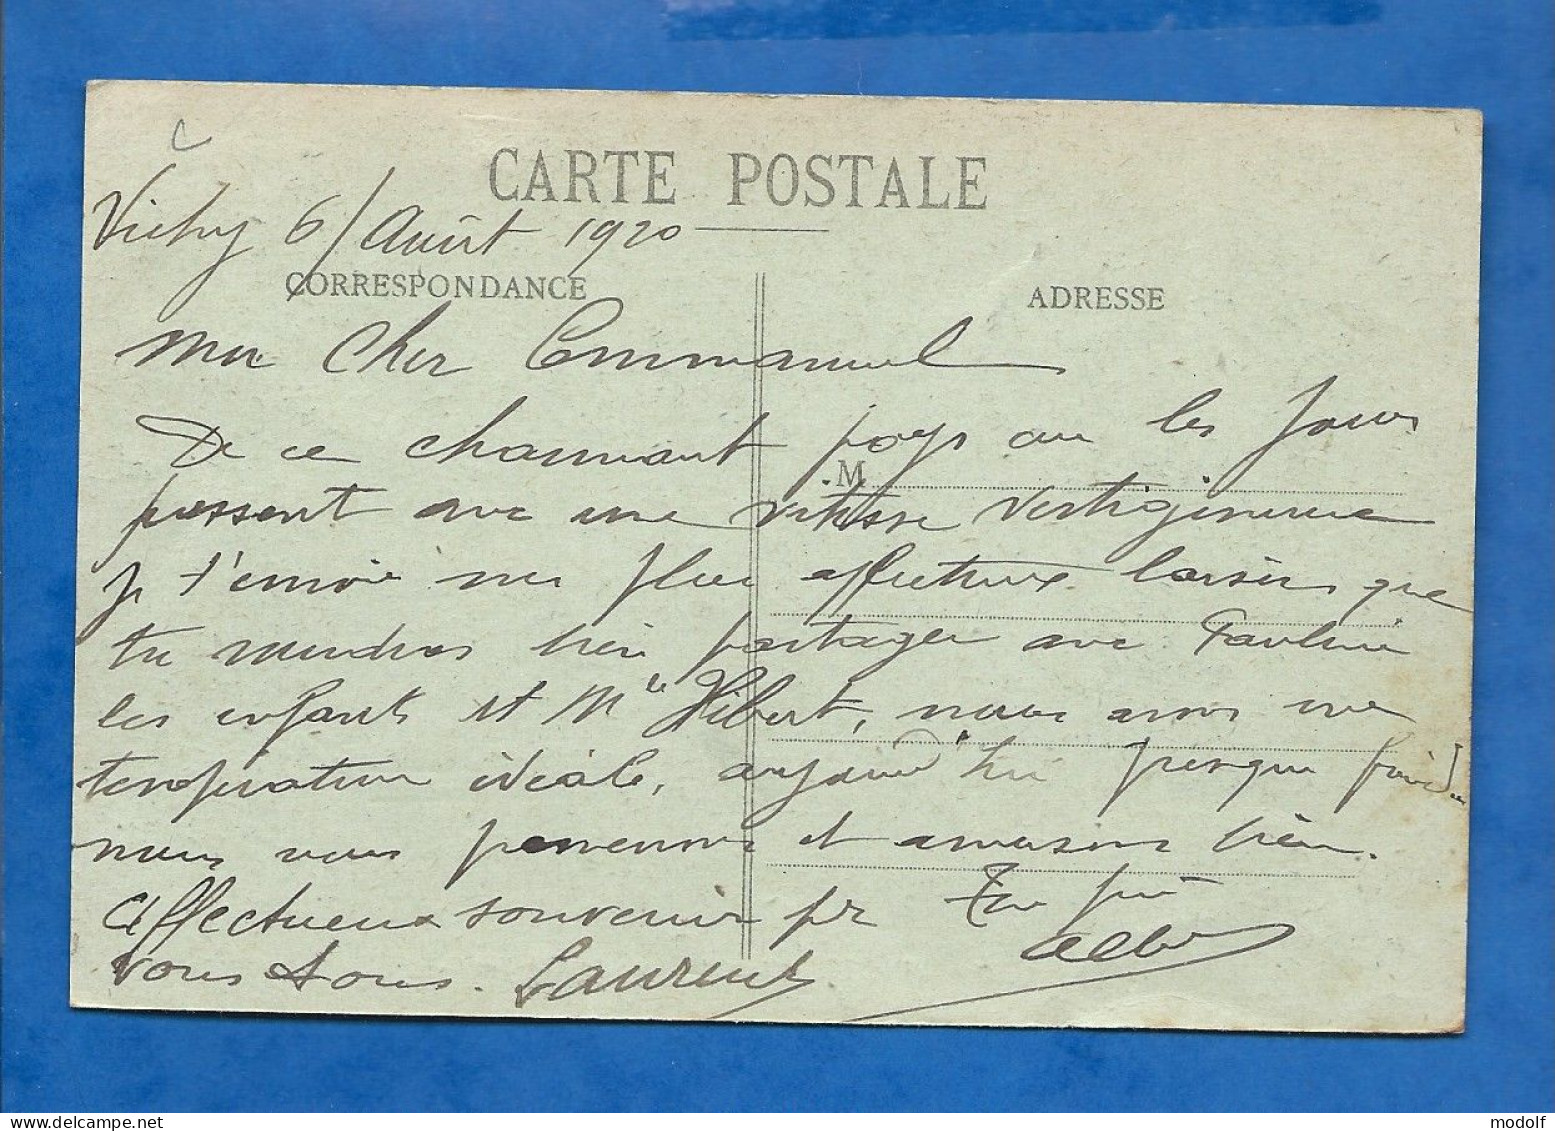 CARTE POSTALE
Vichy 6/Août 1920
CORRESPONDANCE
ADRESSE
Mon cher Emmanuel
De ce charmant pays ou les jours
M
passent avec une vitesse vertigineuse
je t'envoie mes plus affectueux baisers que
tu voudras bien partager avec Pauline
les enfants et Mlle Hibert, nous avons une
température idéale, aujourd'hui presque froide
nous vous promenons et amusons bien.
Affectueux souvenir pr Ton
vous tous. Laurent
delcampe.net
modolf